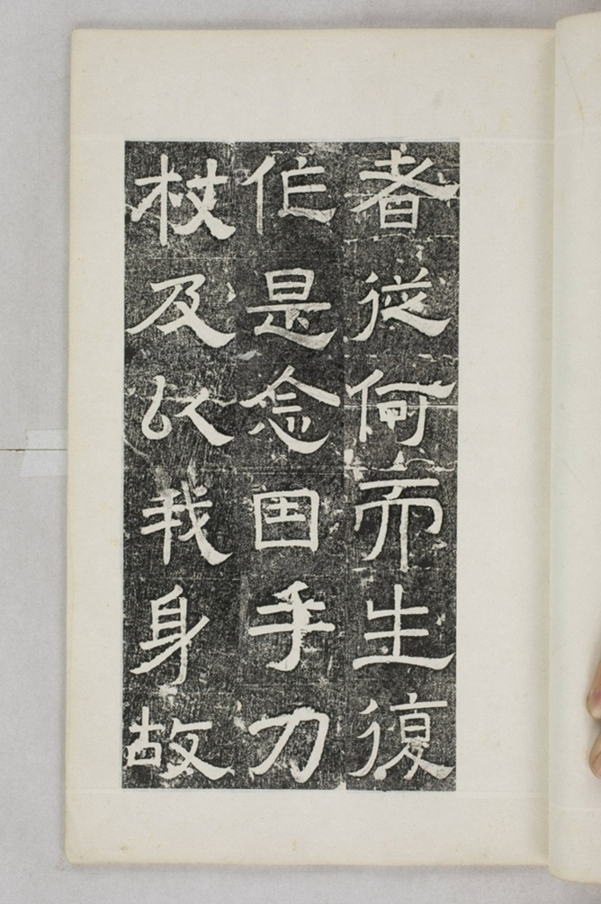 者從何而生復
作是念因手刀
杖及以我身故